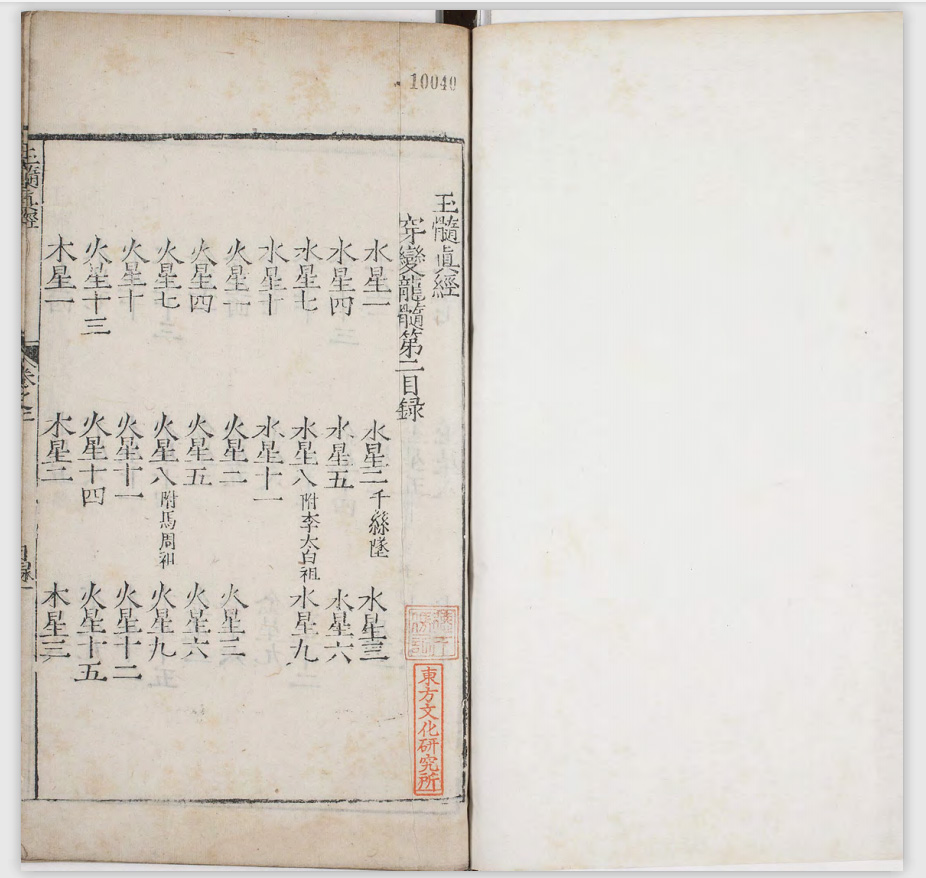 10040
玉髓眞經
穿變龍髓第二目録
水星一
水星二 千絲墜
水星三
水星四
水星五
水星六
水星七
水星八 附李太白祖
水星九
水星十
水星十一
火星一
火星二
火星三
火星四
火星五
火星六
火星七
火星八 附馬周祖
火星九
火星十
火星十一
火星十二
火星十三
火星十四
火星十五
木星一
木星二
木星三
東方文化研究所
玉髓眞經